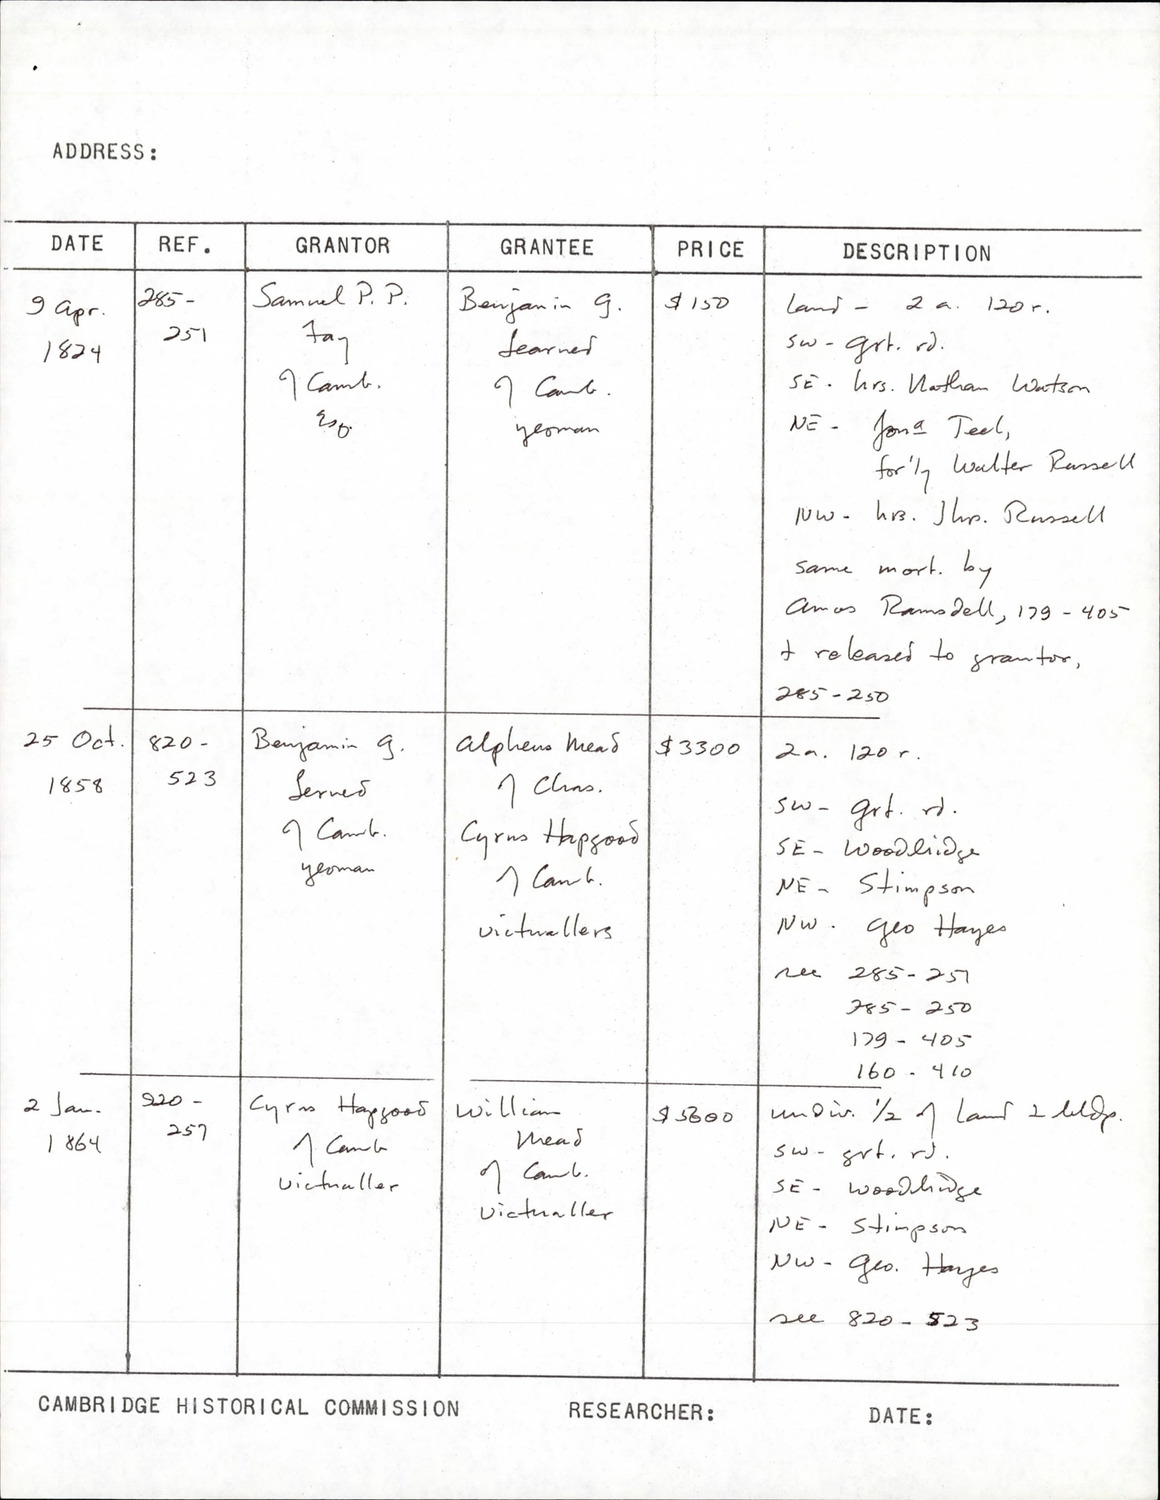 ADDRESS:
DATE REF. GRANTOR GRANTEE PRICE DESCRIPTION
9 Apr.
1824
285-
251
Samuel P. P.
Fay
of Camb.
Esq.
Benjamin G.
Learned
of Camb.
yeoman
$150
land - 2 a. 120 r.
SW - grt. rd.
SE - hrs. Nathan Watson
NE - Jonª Teel,
for'ly Walter Russell
NW - hrs. Jhn. Russell
same mort. by
Amos Ramsdell, 179-405
+ released to grantor,
285-250
25 Oct.
1858
820-
523
Benjamin G.
Lerned
of Camb.
yeoman
Alpheus Mead
of Chas.
Cyrus Hapgood
of Camb.
victuallers
$3300
2 a. 120 r.
SW - grt. rd.
SE - Woodbridge
NE - Stimpson
NW - Geo Hayes
see 285-251
285-250
179-405
160-410
2 Jan.
1864
920-
257
Cyrus Hapgood
of Camb
victualler
William
Mead
of Camb.
victualler
$3600
undiv. 1/2 of land & bldgs.
SW - grt. rd.
SE - Woodbridge
NE - Stimpson
NW - Geo. Hayes
see 820-523
CAMBRIDGE HISTORICAL COMMISSION RESEARCHER: DATE: